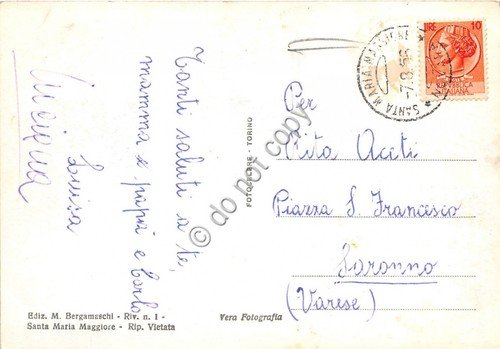 Tanti saluti a te,
mamma e papà e Carlo
Luisa
Luciana
Per
Rita Aceti
Piazza S. Francesco
Saronno
(Varese)
LIRE 10
REPUBBLICA
ITALIANA
SANTA MARIA MAGGIORE
-7.8.56
FOTOCELERE - TORINO
Ediz. M. Bergamaschi - Riv. n. 1 -
Santa Maria Maggiore - Rip. Vietata
Vera Fotografia
do not copy